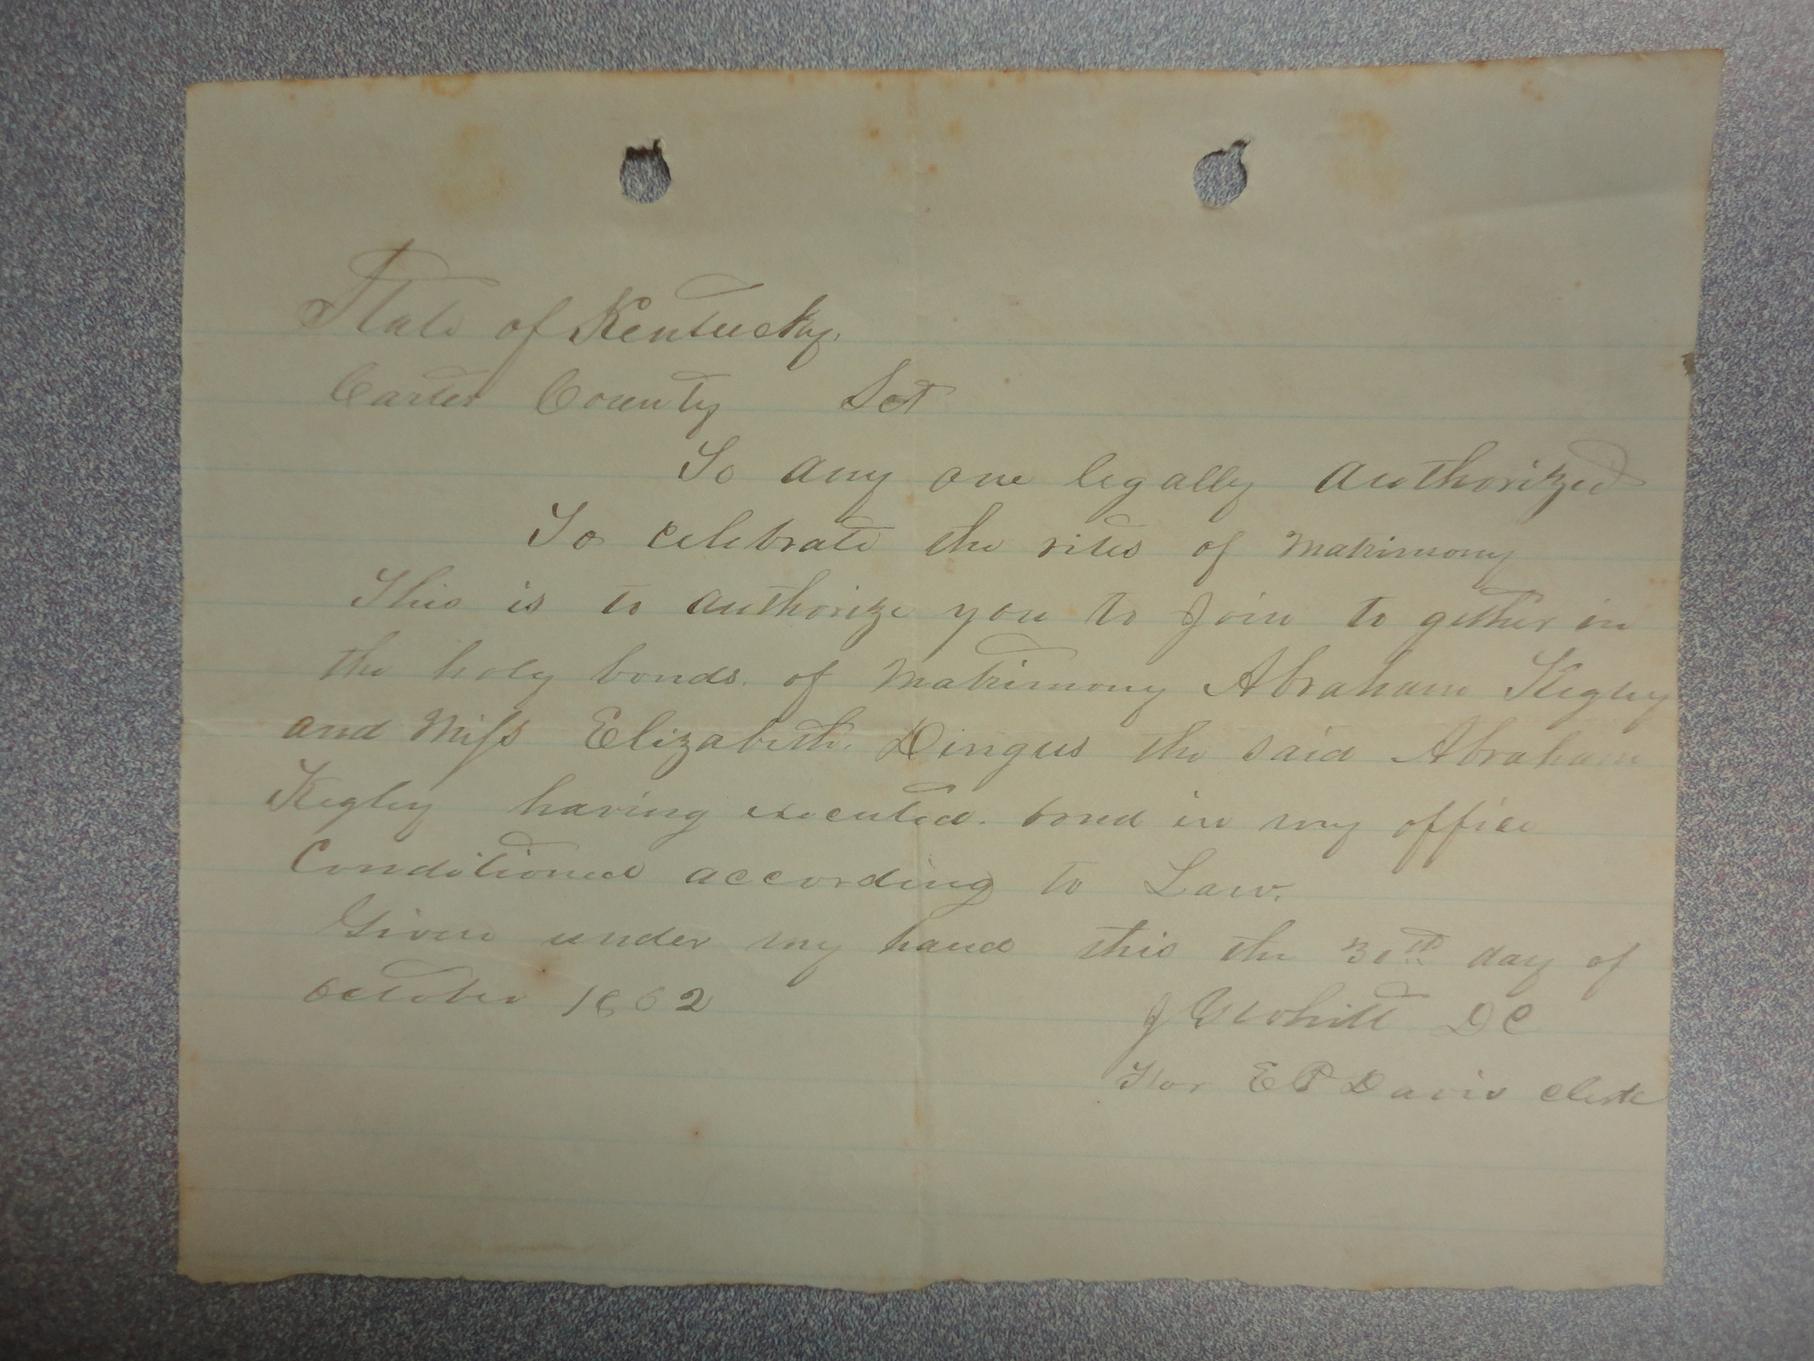 State of Kentucky,
Carter County Sct
To any one legally authorized
To celebrate the rites of matrimony
This is to authorize you to Join to gether in
the holy bonds. of matrimony Abraham Kegley
and Miss Elizabeth. Dingus the said Abraham
Kegley having executed. bond in my office
Conditioned according to Law.
Given under my hand this the 30th day of
October 1862
J Whitt DC
For E P Davis Clerk